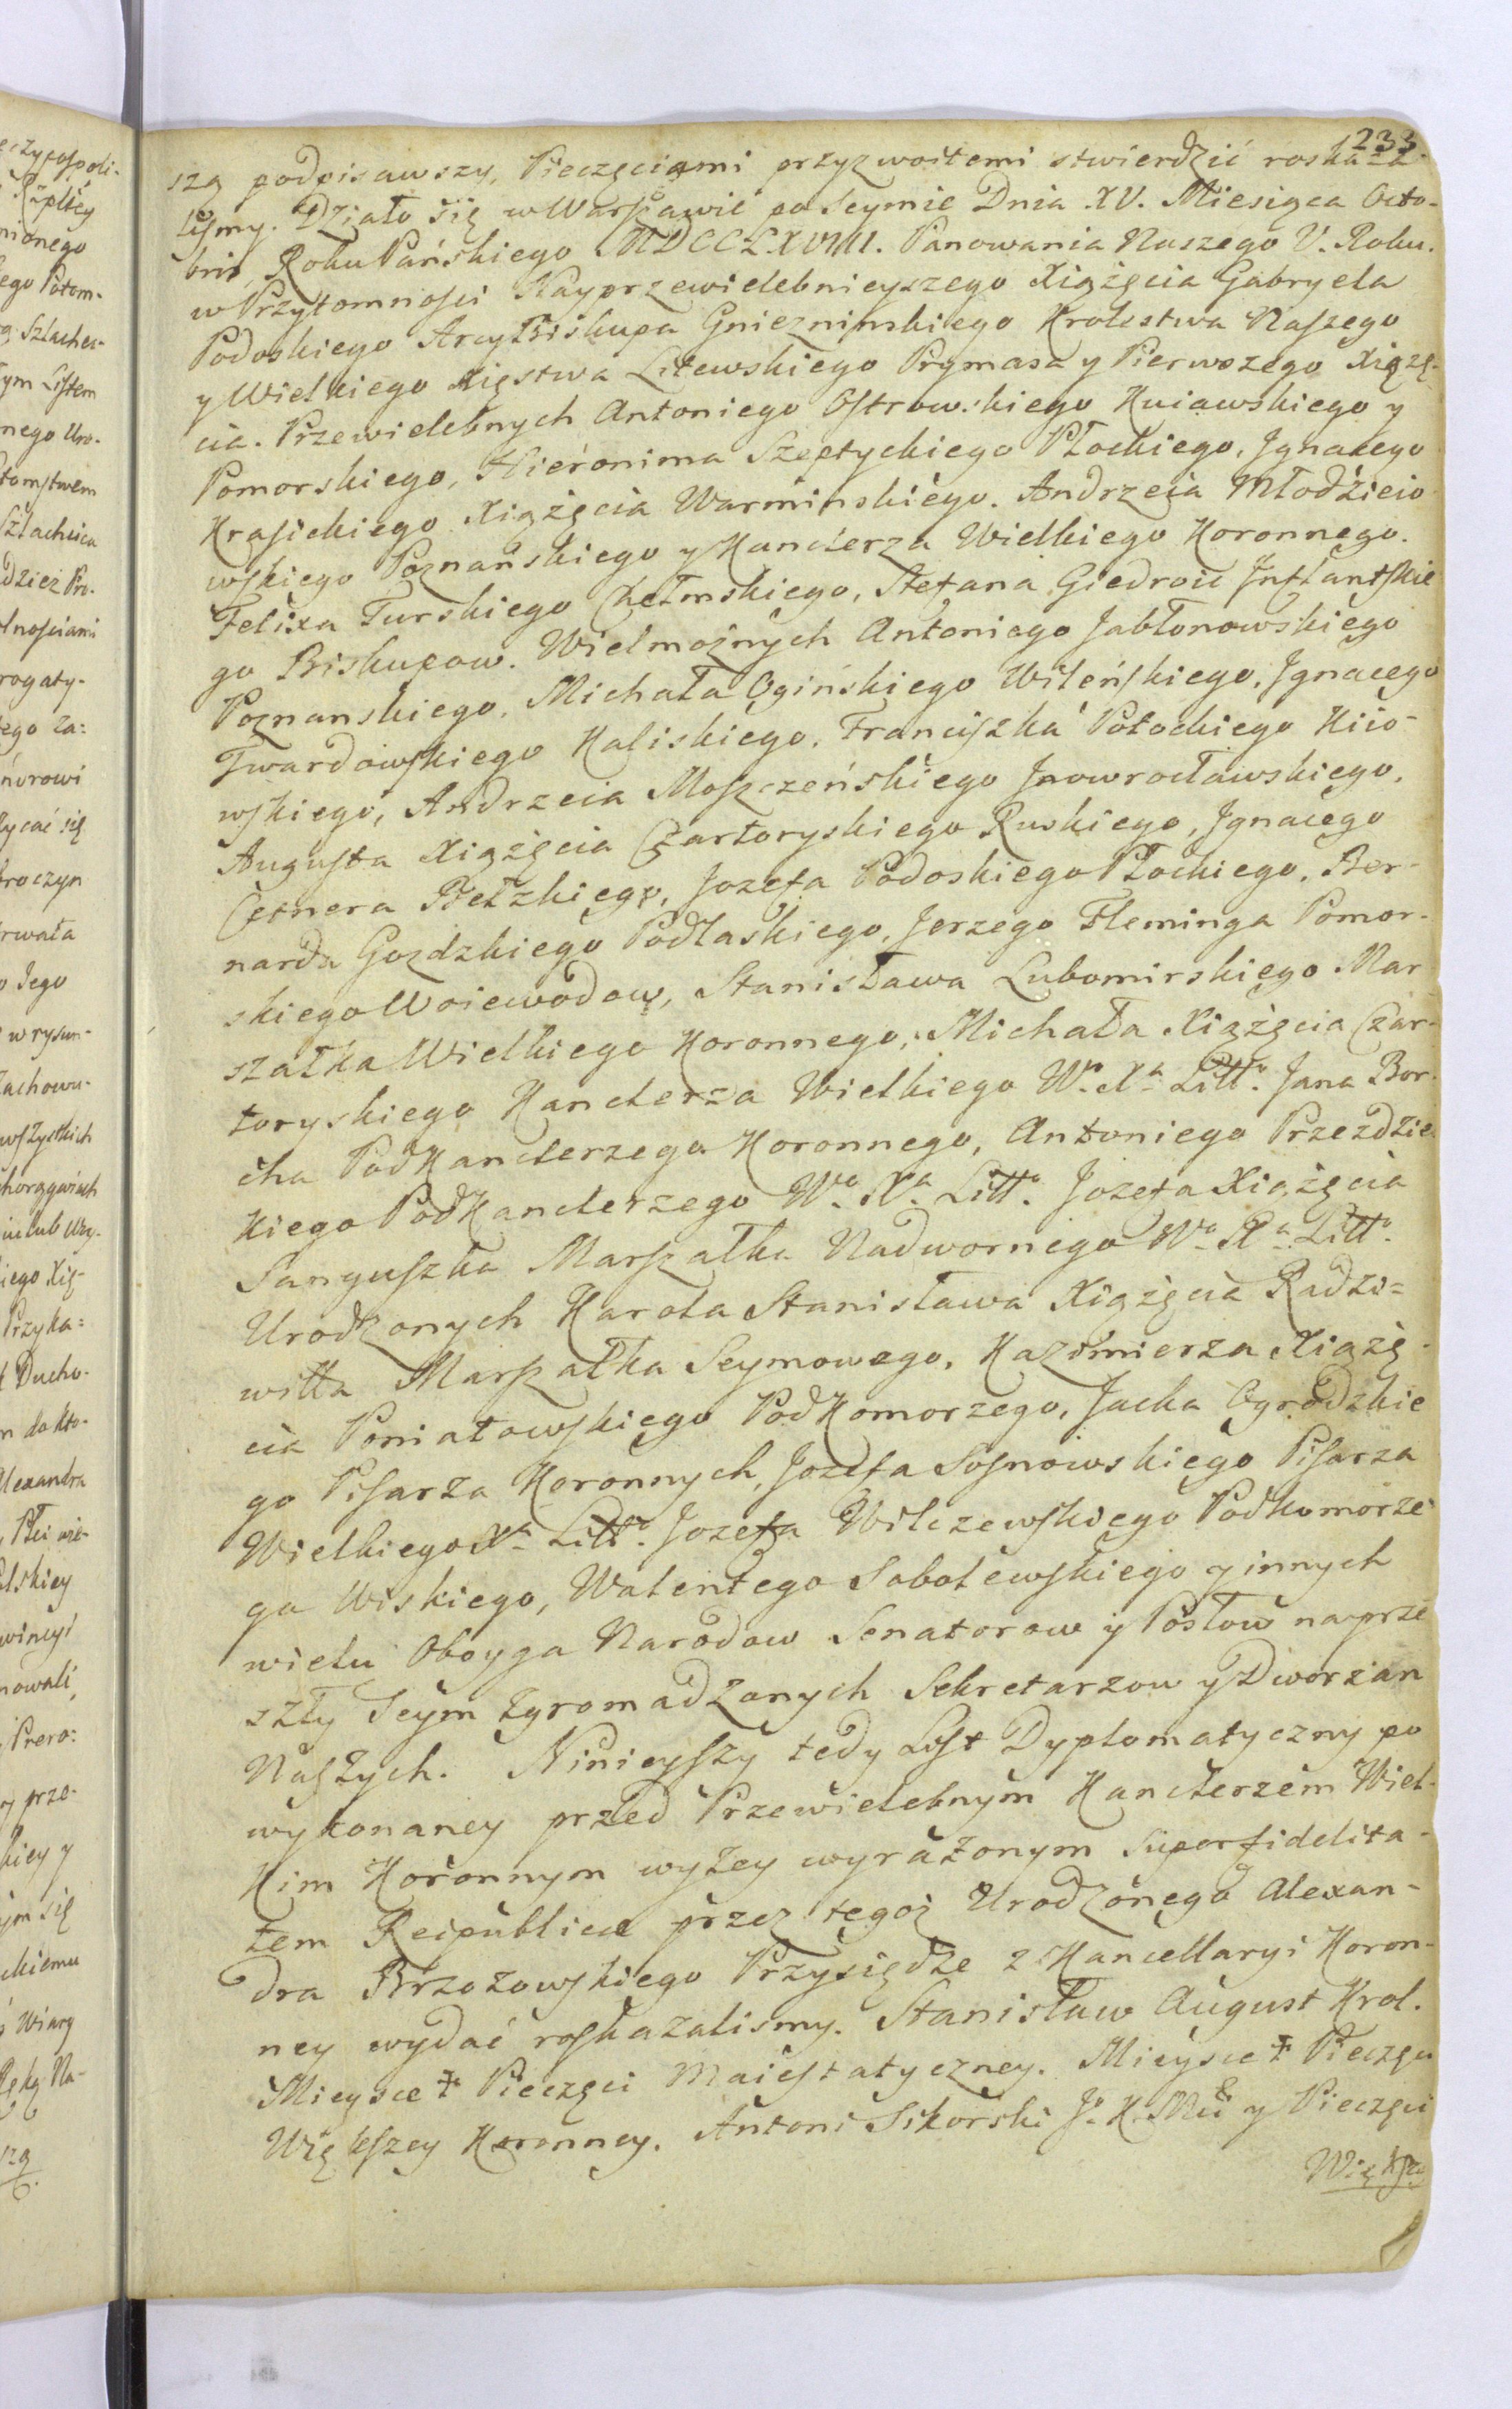 233
szą podpisawszy, Pieczęciami przyzwoitemi stwierdzić roskaza-
liśmy. Działo się w Warszawie po Seymie Dnia XV. Miesiąca Octo-
bris, Roku Pańskiego MDCCLXVIII. Panowania Naszego V. Roku.
w Przytomności Nayprzewielebnieyszego Xiążęcia Gabryela
Podoskiego ArcyBiskupa Gniezninskiego Krolestwa Naszego
y Wielkiego Xięstwa Litewskiego Prymasa y Pierwszego Xiążę-
cia. Przewielebnych Antoniego Ostrowskiego Kuiawskiego y
Pomorskiego, Hieronima Szeptyckiego Płockiego, Jgnacego
Krasickiego Xiążęcia Warminskiego. Andrzeia Młodzieio
wskiego Poznańskiego y Kanclerza Wielkiego Koronnego.
Felixa Turskiego Chełmskiego, Stefana Giedroić Jnflantskie
go Biskupow. Wielmożnych Antoniego Jabłonowskiego
Poznanskiego, Michała Ogińskiego Wileńskiego, Jgnacego
Twardowskiego Kaliskiego, Franciszka Potockiego Kiio-
wskiego, Andrzeia Moszczeńskiego Jnowrocławskiego,
Augusta Xiążęcia Czartoryskiego Ruskiego, Jgnacego
Cetnera Bełzkiego, Jozefa Podoskiego Płockiego, Ber-
narda Gozdzkiego Podlaskiego, Jerzego Fleminga Pomor-
skiego Woiewodow, Stanisława Lubomirskiego Mar
szałka Wielkiego Koronnego, Michała Xiążęcia Czar-
toryskiego Kanclerza Wielkiego Wo Xa Litto. Jana Bor-
cha PodKanclerzego Koronnego, Antoniego Przezdzie-
kiego PodKanclerzego Wo Xa Litto. Jozefa Xiążęcia
Sanguszka Marszałka Nadwornego Wo Xa Litto.
Urodzonych Karola Stanisława Xiążęcia Radzi=
wiłła Marszałka Seymowego, Kazimierza Xiążę-
cia Poniatowskiego PodKomorzego, Jacka Ogrodzkie
go Pisarza Koronnych, Jozefa Sosnowskiego Pisarza
Wielkiego Xa Litto. Jozefa Wilczewskiego Podkomorze
go Wiskiego, Walentego Sobolewskiego y innych
wielu Oboyga Narodow Senatorow y Posłow na prze
szły Seym zgromadzonych Sekretarzow y Dworzan
Naszych. Ninieyszy tedy List Dyplomatyczny po
wykonaney przed Przewielebnym Kanclerzem Wiel-
Kim Koronnym wyżey wyrażonym super fidelita-
tem Reipublicae przez tegoż Urodzonego Alexan-
dra Brzozowskiego Przysiędze z Kancellaryi Koron-
ney wydać roskazalismy. Stanisław August Krol.
Mieysce ‡ Pieczęci Maiestatyczney. Mieysce ‡ Pieczęci
Większey Koronney. Antoni Sikorski J. K. Mci y Pieczęci
Większey